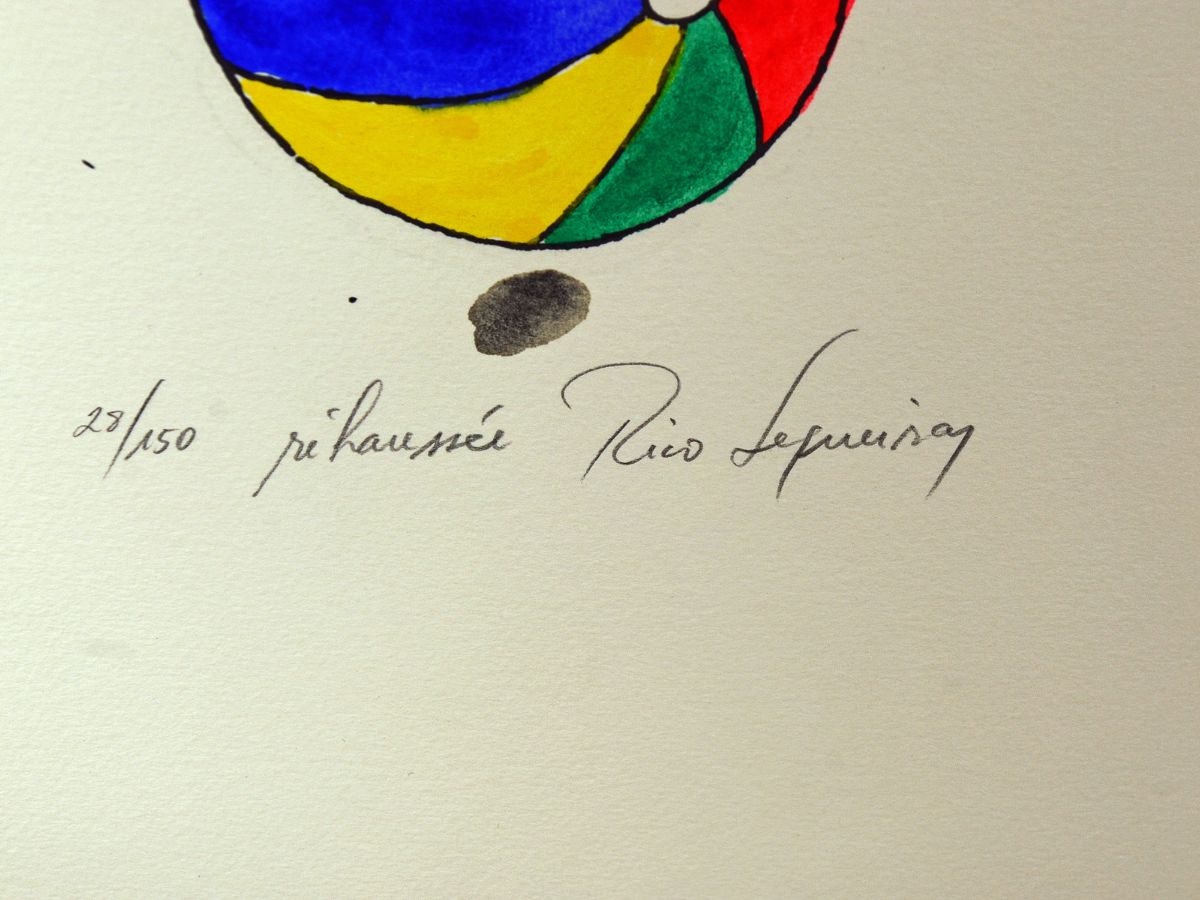 28/150 réhaussée Rico Sequeira